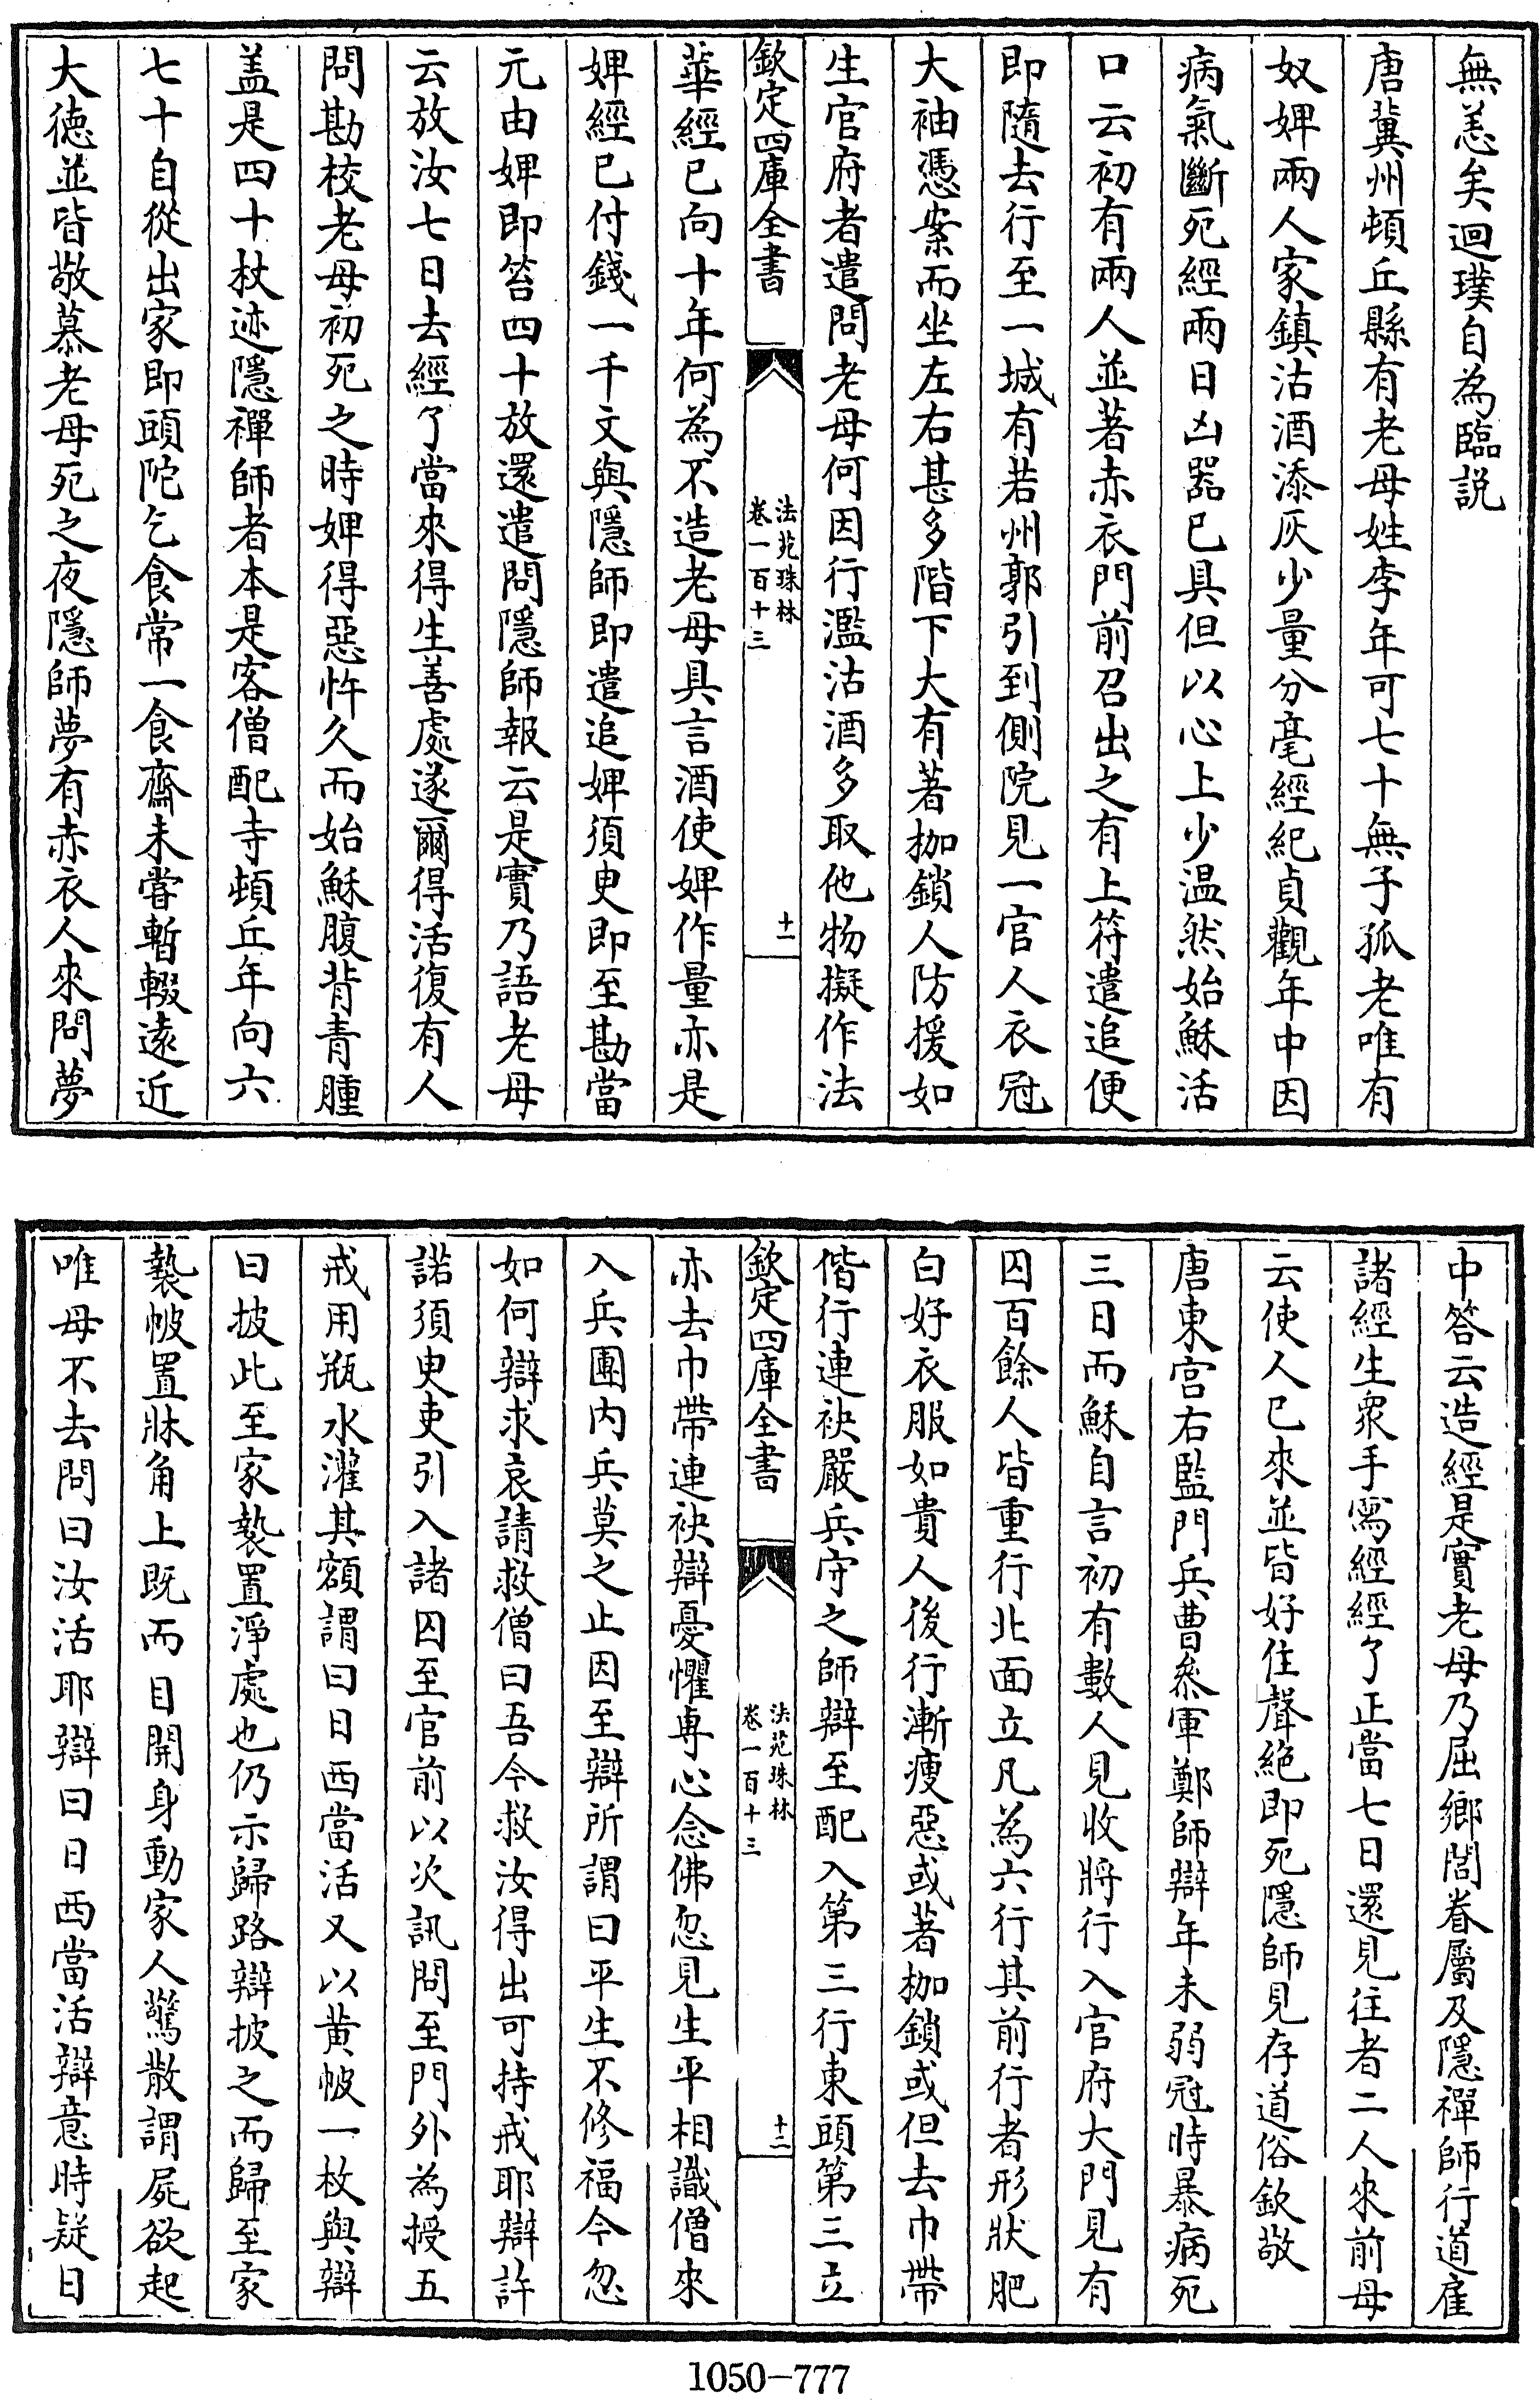 無恙矣迴璞自為臨説
唐冀州頓丘縣有老母姓李年可七十無子孤老唯有
奴婢兩人家鎮沽酒添灰少量分毫經紀貞觀年中因
病氣斷死經兩日凶器已具但以心上少温然始穌活
口云初有兩人並著赤衣門前召出之有上符遣追便
即隨去行至一城有若州郭引到側院見一官人衣冠
大袖憑案而坐左右甚多階下大有著枷鎖人防援如
生官府者遣問老母何因行濫沽酒多取他物擬作法
欽定四庫全書
法苑珠林
卷一百十三
十一
華經已向十年何為不造老母具言酒使婢作量亦是
婢經已付錢一千文與隱師即遣追婢須臾即至勘當
元由婢即笞四十放還遣問隱師報云是實乃語老母
云放汝七日去經了當來得生善處遂爾得活復有人
問勘校老母初死之時婢得惡忤久而始穌腹背青腫
盖是四十杖迹隱禪師者本是客僧配寺頓丘年向六
七十自從出家即頭陀乞食常一食齋未嘗暫輟遠近
大徳並皆敬慕老母死之夜隱師夢有赤衣人來問夢
中答云造經是實老母乃屈鄉閭眷屬及隱禪師行道雇
諸經生衆手寫經經了正當七日還見往者二人來前母
云使人已來並皆好住聲絶即死隱師見存道俗欽敬
唐東宫右監門兵曹叅軍鄭師辯年未弱冠時暴病死
三日而穌自言初有數人見收將行入官府大門見有
囚百餘人皆重行北面立凡為六行其前行者形狀肥
白好衣服如貴人後行漸瘦惡或著枷鎖或但去巾帶
偕行連袂嚴兵守之師辯至配入第三行東頭第三立
欽定四庫全書
法苑珠林
卷一百十三
十二
亦去巾帶連袂辯憂懼専心念佛忽見生平相識僧來
入兵團内兵莫之止因至辯所謂曰平生不修福今忽
如何辯求哀請救僧曰吾今救汝得出可持戒耶辯許
諾須臾吏引入諸囚至官前以次訊問至門外為授五
戒用瓶水灌其額謂曰日西當活又以黄帔一枚與辯
曰披此至家褺置淨處也仍示歸路辯披之而歸至家
褺帔置牀角上既而目開身動家人驚散謂屍欲起
唯母不去問曰汝活耶辯曰日西當活辯意時疑日
1050-777